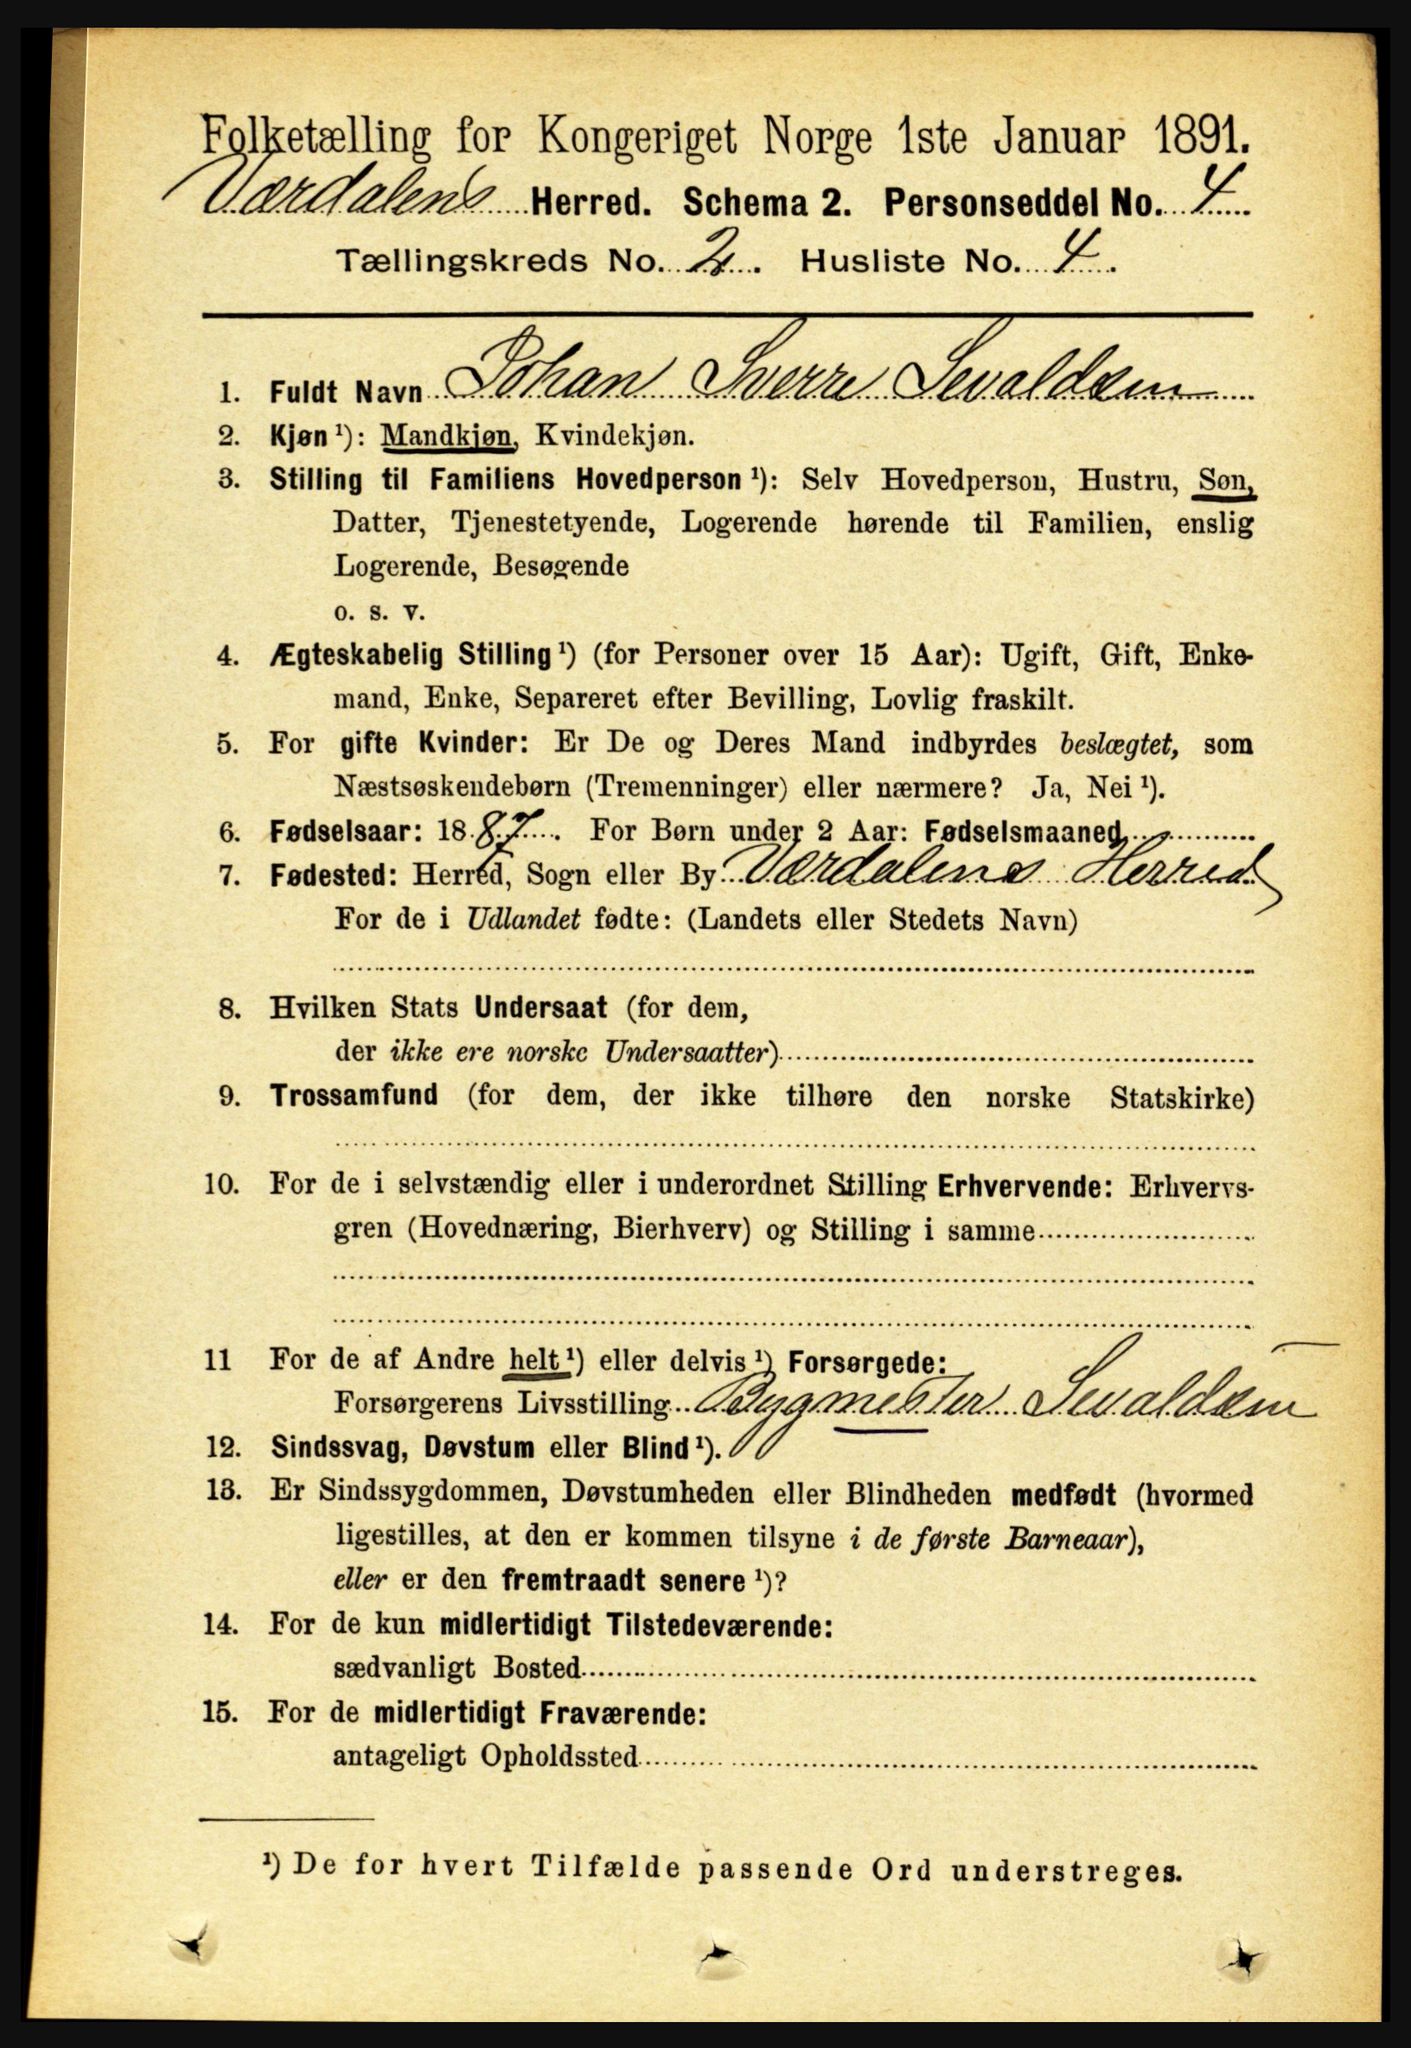 Folketælling for Kongeriget Norge 1ste Januar 1891.
Værdalens Herred. Schema 2. Personseddel No. 4
Tællingskreds No. 2. Husliste No. 4.
1. Fuldt Navn Johan Sverre Sevaldsen
2. Kjøn ¹): Mandkjøn, Kvindekjøn.
3. Stilling til Familiens Hovedperson ¹): Selv Hovedperson, Hustru, Søn,
Datter, Tjenestetyende, Logerende hørende til Familien, enslig
Logerende, Besøgende
o. s. v.
4. Ægteskabelig Stilling ¹) (for Personer over 15 Aar): Ugift, Gift, Enke-
mand, Enke, Separeret efter Bevilling, Lovlig fraskilt.
5. For gifte Kvinder: Er De og Deres Mand indbyrdes beslægtet, som
Næstsøskendebørn (Tremenninger) eller nærmere? Ja, Nei ¹).
6. Fødselsaar: 1887. For Børn under 2 Aar: Fødselsmaaned
7. Fødested: Herred, Sogn eller By Værdalens Herred
For de i Udlandet fødte: (Landets eller Stedets Navn)
8. Hvilken Stats Undersaat (for dem,
der ikke ere norske Undersaatter)
9. Trossamfund (for dem, der ikke tilhøre den norske Statskirke)
10. For de i selvstændig eller i underordnet Stilling Erhvervende: Erhvervs-
gren (Hovednæring, Bierhverv) og Stilling i samme
11 For de af Andre helt ¹) eller delvis ¹) Forsørgede:
Forsørgerens Livsstilling Bygmester Sevaldsen
12. Sindssvag, Døvstum eller Blind ¹).
13. Er Sindssygdommen, Døvstumheden eller Blindheden medfødt (hvormed
ligestilles, at den er kommen tilsyne i de første Barneaar),
eller er den fremtraadt senere ¹)?
14. For de kun midlertidigt Tilstedeværende:
sædvanligt Bosted
15. For de midlertidigt Fraværende:
antageligt Opholdssted
¹) De for hvert Tilfælde passende Ord understreges.